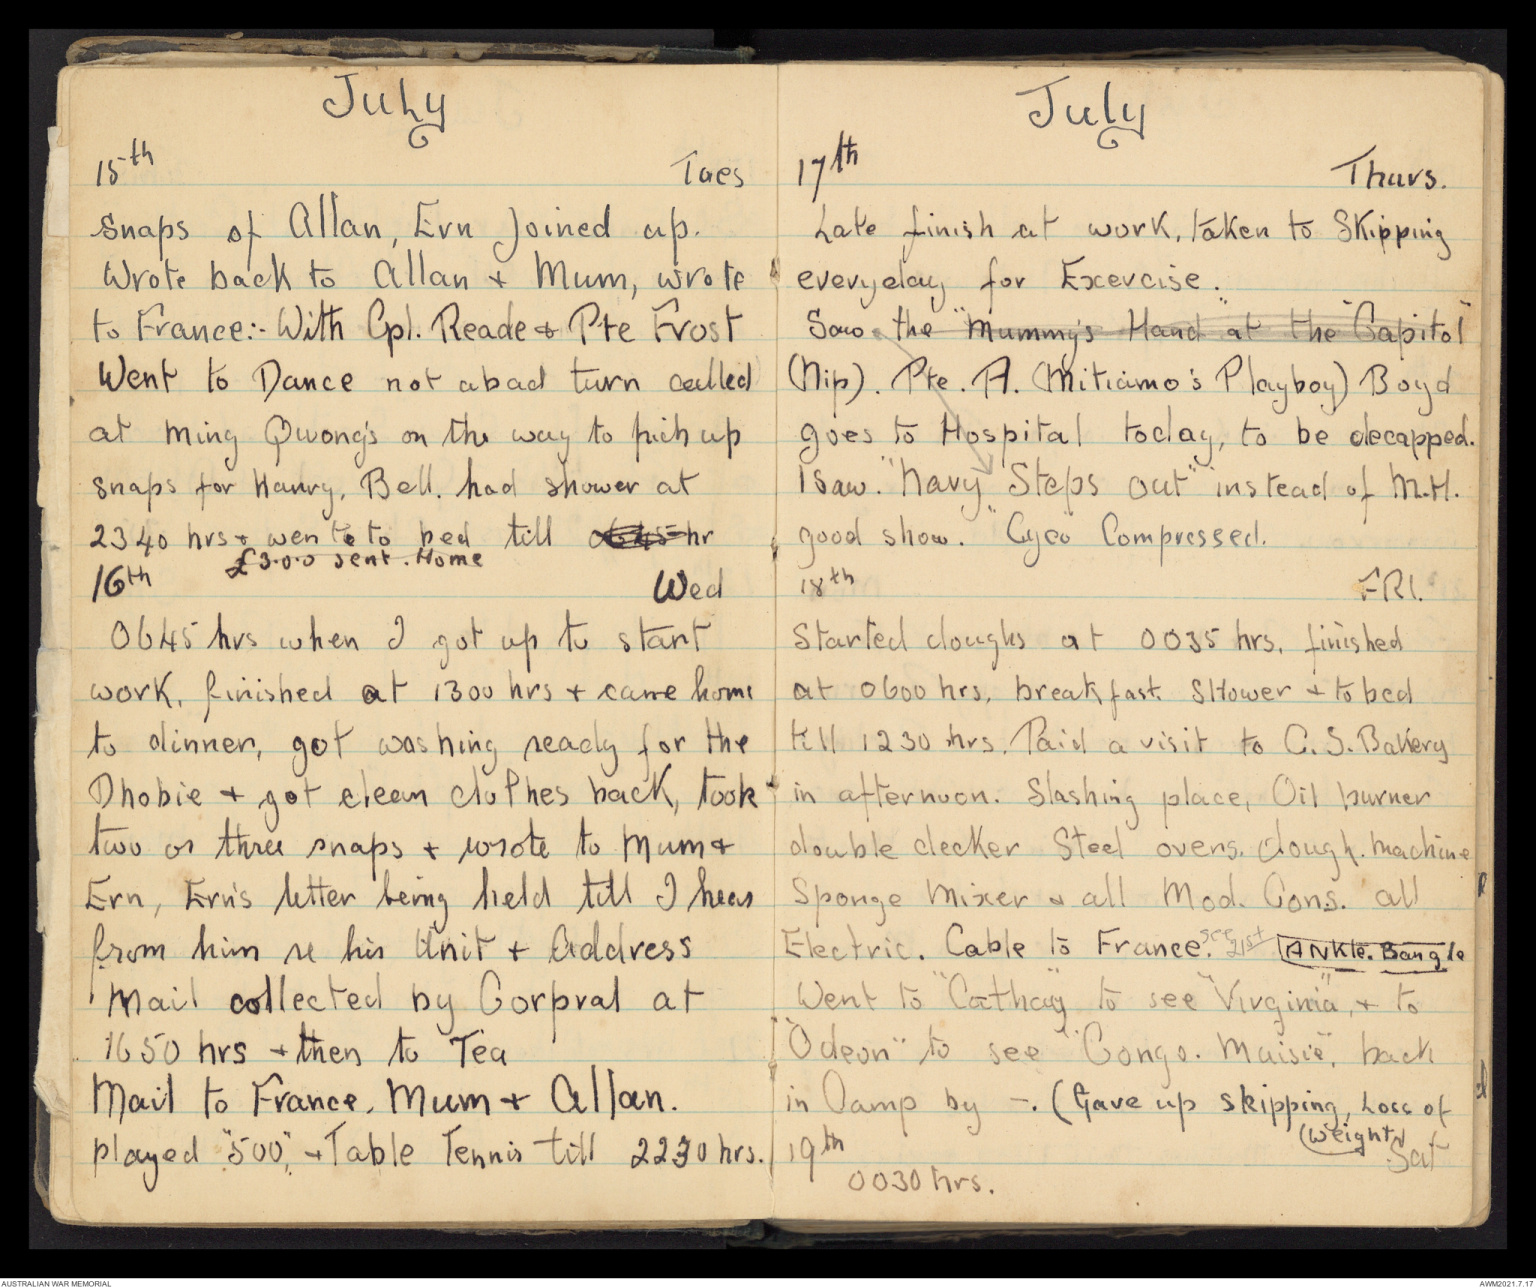 July
15th Tues
snaps of Allan, Ern Joined up.
Wrote back to Allan + Mum, wrote
to France:- With Cpl. Reade + Pte Frost
Went to Dance not abad turn called
at Ming Qwong's on the way to pick up
snaps for Harry, Bell. had shower at
2340 hrs + went to to bed till 0645 hr
£3.0.0 sent. Home
16th Wed
0645 hrs when I got up to start
work, finished at 1300 hrs + came home
to dinner, got washing ready for the
Dhobie + got clean clothes back, took
two or three snaps + wrote to Mum +
Ern, Ern's letter being held till I hear
from him re his Unit + Address
Mail collected by Corpral at
1650 hrs + then to Tea
Mail to France, Mum + Allan.
played "500", + Table Tennis till 2230 hrs.
July
17th Thurs.
Late finish at work, taken to Skipping
everyday for Excercise.
Saw the "Mummy's Hand" at the "Capitol"
(Nip). Pte. A. (Mitiamo's Playboy) Boyd
goes to Hospital today, to be decapped.
I saw. "Navy Steps out" instead of M.H.
good show. "Cyco" Compressed.
18th FRI.
Started doughs at 0035 hrs, finished
at 0600 hrs, breakfast. SHower + to bed
till 1230 hrs. Paid a visit to C.S. Bakery
in afternoon. Slashing place, Oil burner
double decker Steel ovens, dough. machine
Sponge Mixer & all Mod. Cons. all
Electric. Cable to France. see 21st ANKle. Bangle
Went to "Cathay" to see "Virginia", + to
"Odeon" to see "Congo. Maisie", back
in Camp by -. (Gave up skipping, Loss of
(weight)
19th Sat
0030 hrs.
AUSTRALIAN WAR MEMORIAL
AWM2021.7.17